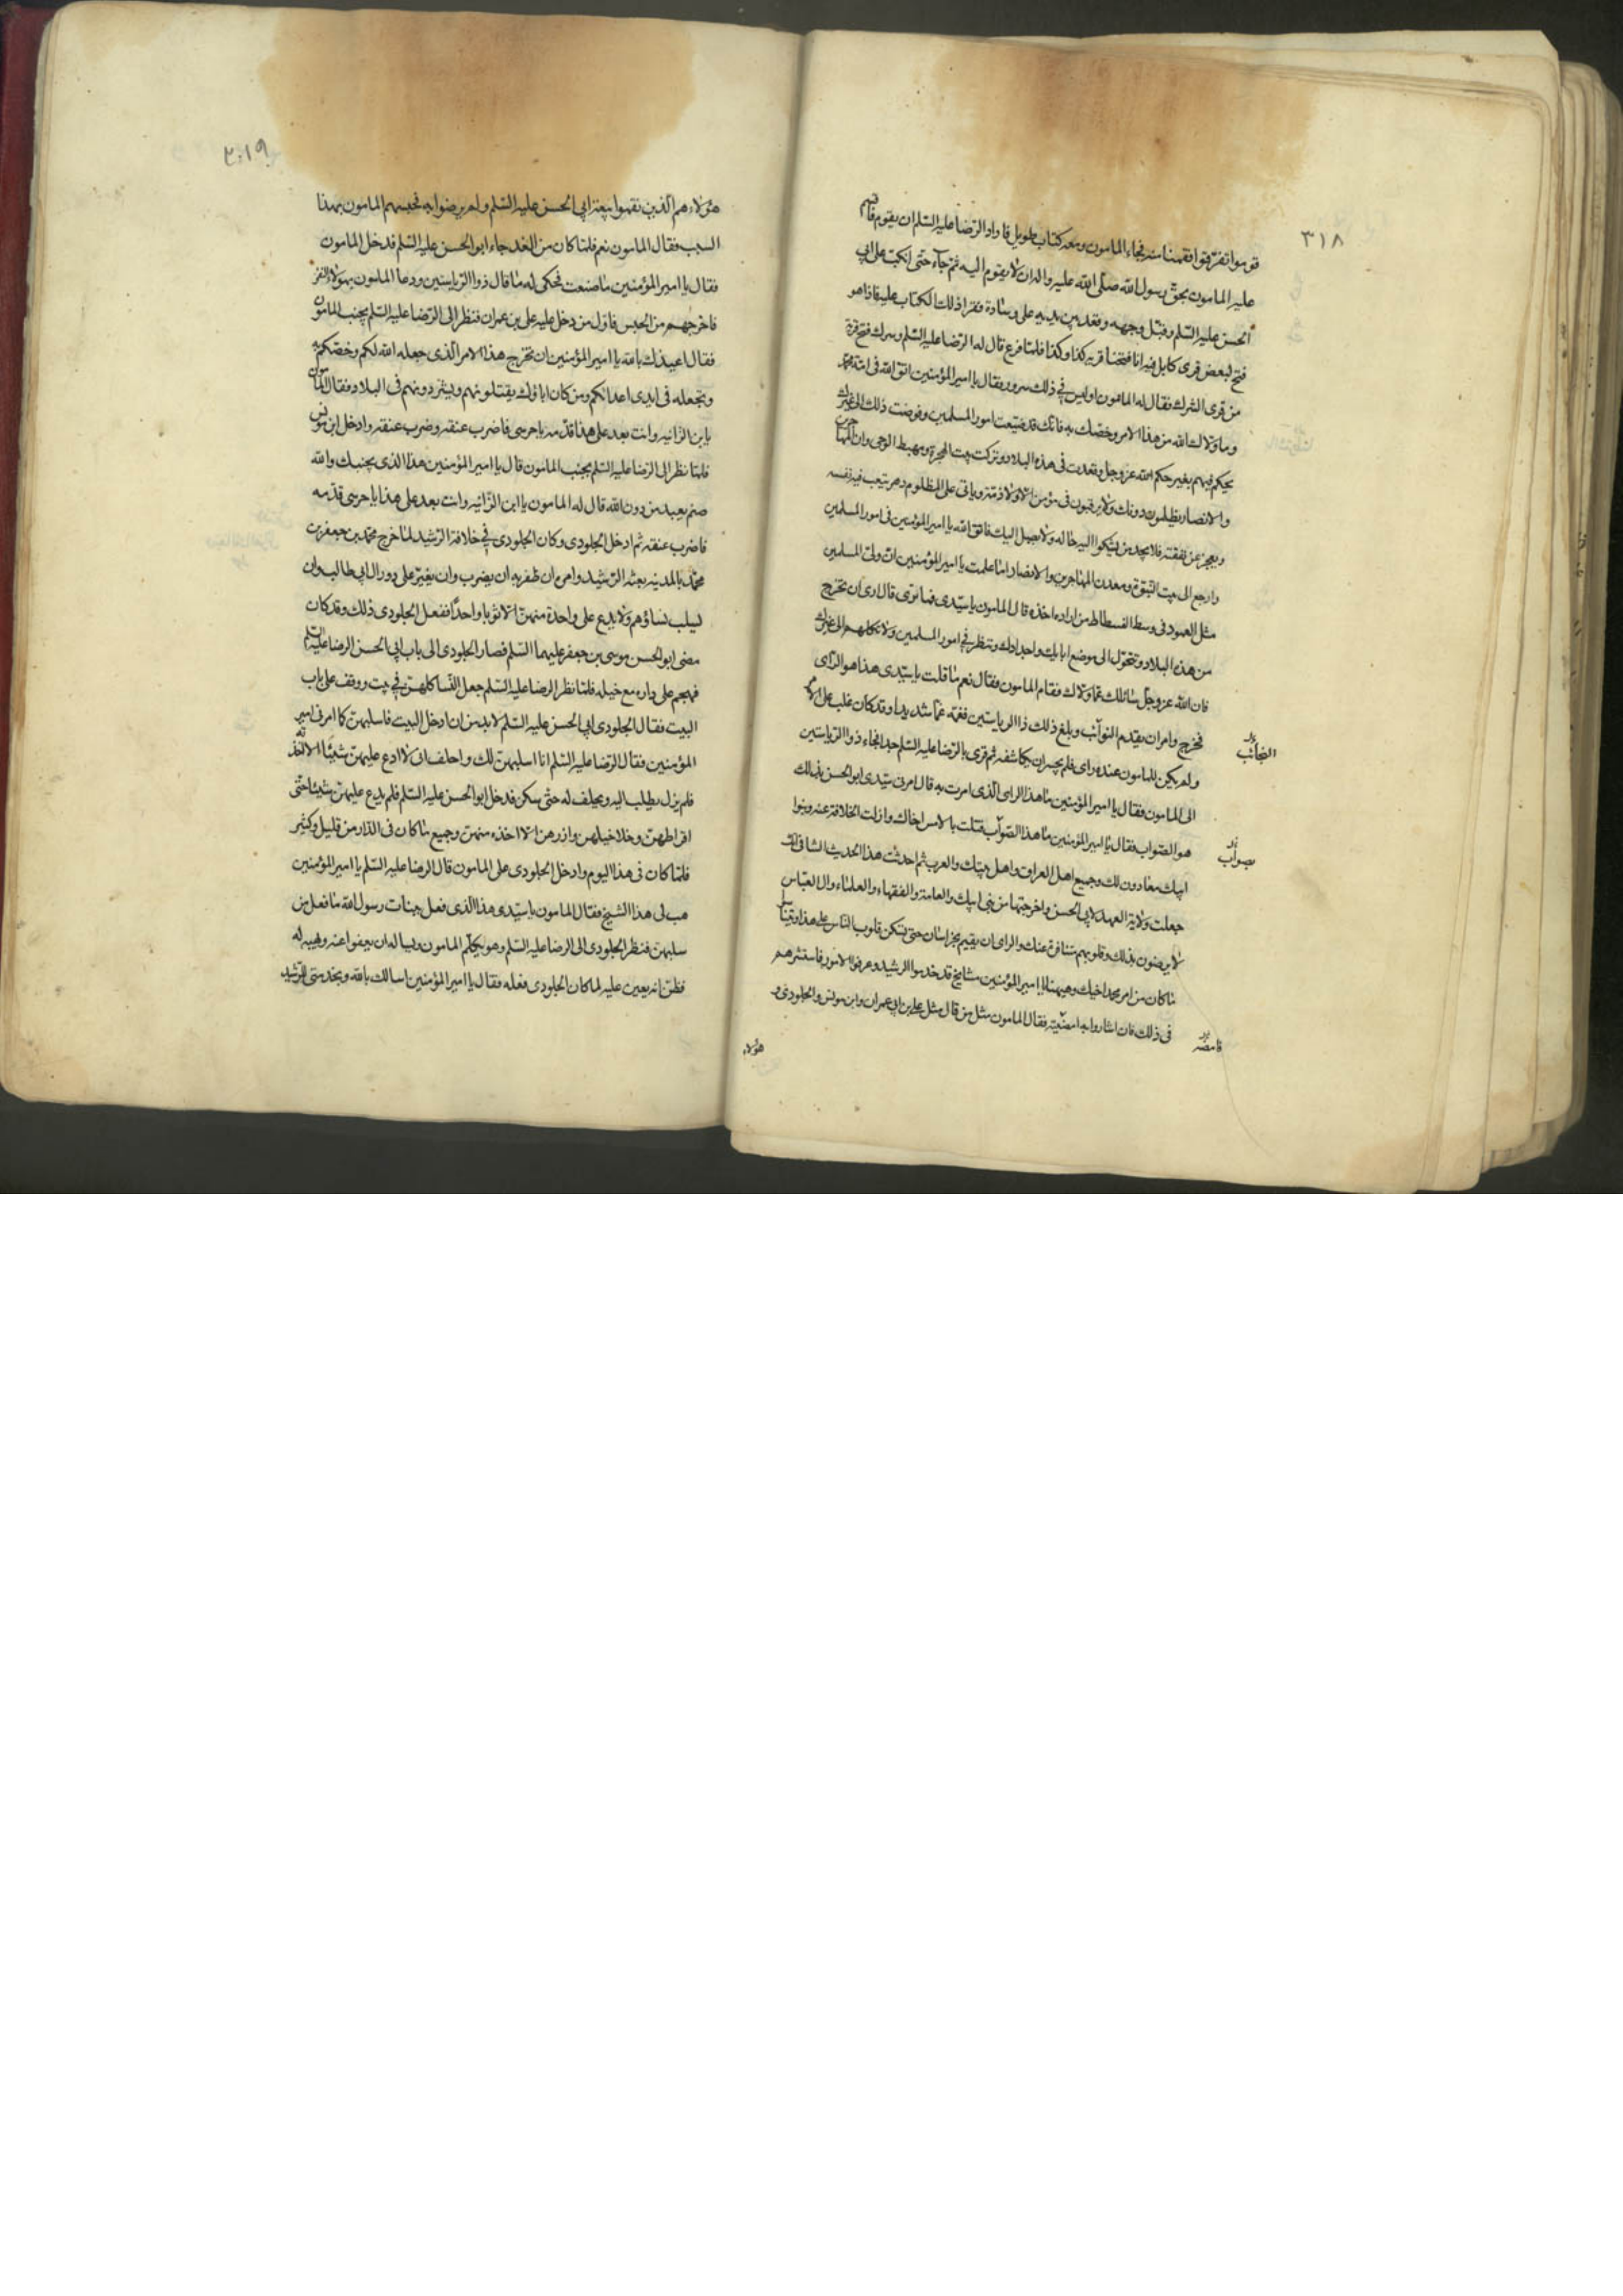 ٣١٨
قوموا تفرقوا فقمنا عنه فجاء المامون ومعه كتاب طويل فاراد الرضا عليه السلم ان يقوم فاقسم
عليه المامون بحق رسول الله صلى الله عليه واله ان لا يقوم اليه ثم جاء حتى انكب على ابي
الحسن عليه السلم وقبل وجهه وقعد بين يديه على وسادة فقرا ذلك الكتاب عليه فاذا هو
فتح لبعض قرى كابل فيه انا فتحنا قرية كذا وكذا فلما فرغ قال له الرضا عليه السلم وسرك فتح قرية
من قرى الشرك فقال له المامون اوليس في ذلك سرور فقال يا امير المؤمنين اتق الله في امة محمد
وما ولاك الله من هذا الامر وخصك به فانك قد ضيعت امور المسلمين وفوضت ذلك الى غيرك
يحكم فيهم بغير حكم الله عز وجل وقعدت في هذه البلاد وتركت بيت الهجرة ومهبط الوحي وان المهاجرين
والانصار يظلمون دونك ولا يرقبون في مؤمن الا ولا ذمة وياتي على المظلوم دهر يتعب فيه نفسه
ويعجز عن نفقته فلا يجد من يشكوا اليه حاله ولا يصل اليك فاتق الله يا امير المؤمنين في امور المسلمين
وارجع الى بيت النبوة ومعدن المهاجرين والانصار اما علمت يا امير المؤمنين ان والى المسلمين
مثل العمود في وسط الفسطاط من اراده اخذه قال المامون يا سيدى فما ترى قال ارى ان تخرج
من هذه البلاد وتتحول الى موضع ابايك واجدادك وتنظر في امور المسلمين ولا تكلهم الى غيرك
فان الله عز وجل سائلك عما ولاك فقام المامون فقال نعم ما قلت يا سيدى هذا هو الراى
فخرج وامر ان يقدم النوآئب وبلغ ذلك ذا الرياستين فغمه غما شديدا وقد كان غلب على الامر
النجائب
ولم يكن للمامون عنده راى فلم يجسر ان يكاشفه ثم قوى بالرضا عليه السلم جدا فجاء ذو الرياستين
الى المامون فقال يا امير المؤمنين ما هذا الراى الذى امرت به قال امرنى سيدى ابو الحسن بذلك
هو الصواب فقال يا امير المؤمنين ما هذا الصوآب قتلت بالامس اخاك وازلت الخلافة عنه وبنوا
بصوآب
ابيك معادون لك وجميع اهل العراق واهل بيتك والعرب ثم احدثت هذا الحديث الثانى انك
جعلت ولاية العهد لابى الحسن واخرجتها من بنى ابيك والعامة والفقهاء والعلماء وال العباس
لا يرضون بذلك وقلوبهم متنافرة عنك والراى ان تقيم بخراسان حتى تسكن قلوب الناس على هذا وتناسوا
ما كان من امر محمد اخيك وهيهنا يا امير المؤمنين مشايخ قد خدموا الرشيد وعرفوا الامور فاستشرهم
في ذلك فان اشاروا به امضيته فقال المامون مثل من قال مثل على بن ابى عمران وابن مونس والجلودى و
فامضه
هؤلاء
٣١٩
هؤلاء هم الذين نقموا بيعة ابى الحسن عليه السلم ولم يرضوا به فحبسهم المامون بهذا
السبب فقال المامون نعم فلما كان من الغد جاء ابو الحسن عليه السلم فدخل المامون
فقال يا امير المؤمنين ما صنعت فحكى له ما قال ذوا الرياستين ودعا المامون بهؤلاء النفر
فاخرجهم من الحبس فاول من دخل عليه على بن عمران فنظر الى الرضا عليه السلم بجنب المامون
فقال اعيذك بالله يا امير المؤمنين ان تخرج هذا الامر الذى جعله الله لكم وخصكم به
وتجعله في ايدى اعدائكم ومن كان اباؤك يقتلونهم ويشردونهم في البلاد فقال المامون
يا بن الزانيه وانت بعد على هذا قدمه يا حرسى فاضرب عنقه وضرب عنقه وادخل ابن مونس
فلما نظر الى الرضا عليه السلم بجنب المامون قال يا امير المؤمنين هذا الذى بجنبك والله
صنم يعبد من دون الله قال له المامون يا ابن الزانيه وانت بعد على هذا يا حرسى قدمه
فاضرب عنقه ثم ادخل الجلودى وكان الجلودى في خلافة الرشيد لما خرج محمد بن جعفر بن
محمد بالمدينه بعثه الرشيد وامره ان ظفر به ان يضرب وان يغير على دور ال ابى طالب وان
ليسلب نساؤهم ولا يدع على واحدة منهن الا ثوبا واحدا ففعل الجلودى ذلك وقد كان
مضى ابو الحسن موسى بن جعفر عليهما السلم فصار الجلودى الى باب ابى الحسن الرضا عليه السلم
فهجم على داره مع خيله فلما نظر الرضا عليه السلم جعل النسا كلهن في بيت ووقف على باب
البيت فقال الجلودى ابى الحسن عليه السلم لا بد من ان ادخل البيت فاسلبهن كما امرنى امير
المؤمنين فقال الرضا عليه السلم انا اسلبهن لك واحلف انى لا ادع عليهن شيئا الا اخذته
فلم يزل يطلب اليه ويحلف له حتى سكن فدخل ابو الحسن عليه السلم فلم يدع عليهن شيئا حتى
اقراطهن وخلاخيلهن وازرهن الا اخذه منهن وجميع ما كان في الدار من قليل وكثير
فلما كان في هذا اليوم وادخل الجلودى على المامون قال الرضا عليه السلم يا امير المؤمنين
هب لى هذا الشيخ فقال المامون يا سيدى هذا الذى فعل ببنات رسول الله ما فعل من
سلبهن فنظر الجلودى الى الرضا عليه السلم وهو يكلم المامون ويساله ان يعفوا عنه ويهبه له
فظن انه يعين عليه لما كان الجلودى فعله فقال يا امير المؤمنين اسالك بالله وبخدمتى للرشيد